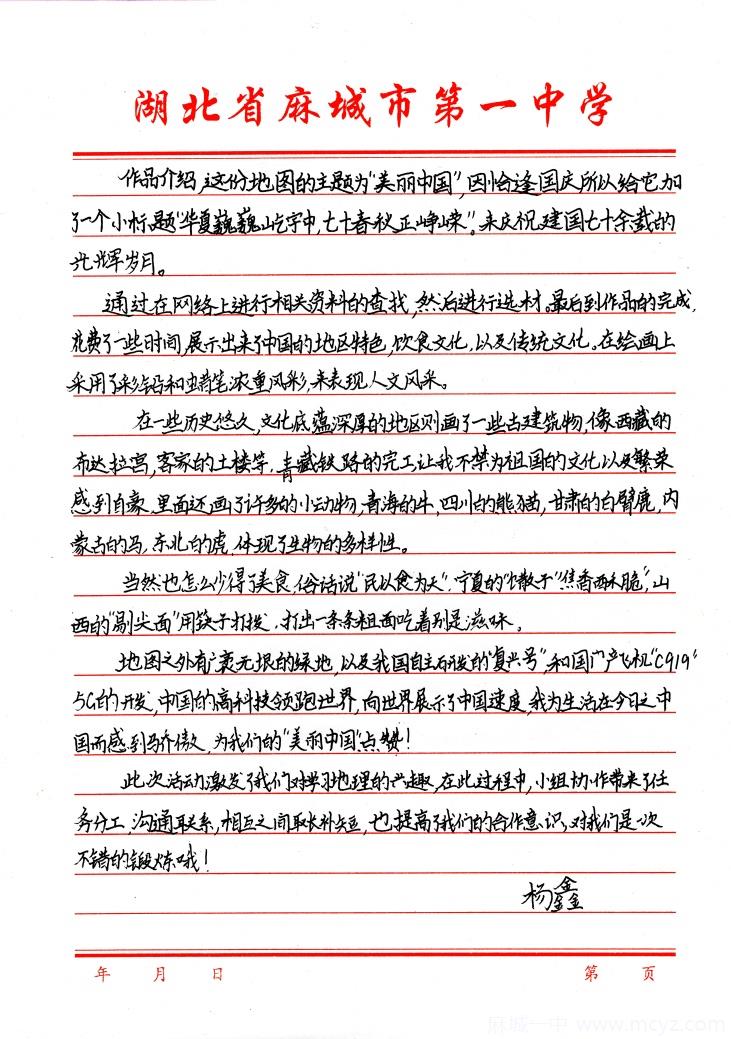 湖北省麻城市第一中学
作品介绍,这份地图的主题为"美丽中国",因恰逢国庆所以给它加
了一个小标题"华夏巍巍屹宇中,七十春秋正峥嵘"。来庆祝建国七十余载的
光辉岁月。
通过在网络上进行相关资料的查找,然后进行选材。最后到作品的完成,
花费了一些时间,展示出来了中国的地区特色,饮食文化,以及传统文化。在绘画上
采用了彩铅和蜡笔浓重风彩,来表现人文风采。
在一些历史悠久,文化底蕴深厚的地区则画了一些古建筑物,像西藏的
布达拉宫,客家的土楼等,青藏铁路的完工让我不禁为祖国的文化以及繁荣
感到自豪。里面还画了许多的小动物,青海的牛,四川的熊猫,甘肃的白臂鹿,内
蒙古的马,东北的虎,体现了生物的多样性。
当然也怎么少得了美食,俗话说"民以食为天",宁夏的"馓子""焦香酥脆",山
西的"剔尖面"用筷子打拨,打出一条条粗面吃着别是滋味。
地图之外有广袤无垠的绿地,以及我国自主研发的"复兴号",和国产飞机"C919"
5G的开发,中国的高科技领跑世界,向世界展示了中国速度,我为生活在今日之中
国而感到骄傲,为我们的"美丽中国"点赞!
此次活动激发了我们对学习地理的兴趣,在此过程中,小组协作带来了任
务分工,沟通联系,相互之间取长补短,也提高了我们的合作意识,对我们是一次
不错的锻炼哦!
杨鑫
年 月 日 第 页
麻城一中 www.mcyz.com